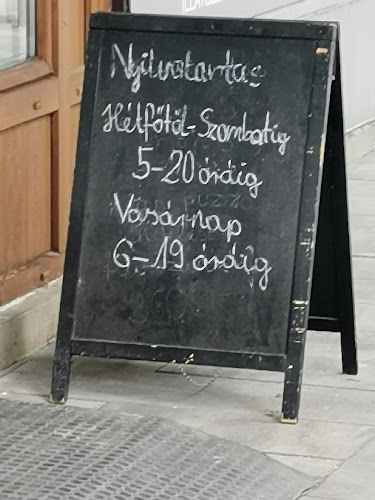 Nyitvatartás
Hétfőtől-Szombatig
5-20 óráig
Vasárnap
6-19 óráig